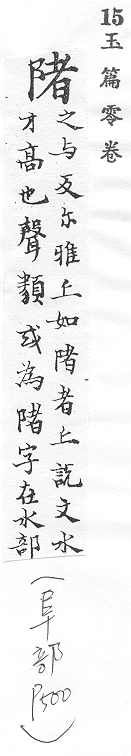 15玉篇零卷
陼
之与反尓雅丘如陼者丘説文水
才髙也聲類或為陼字在水部
(阜部P500)